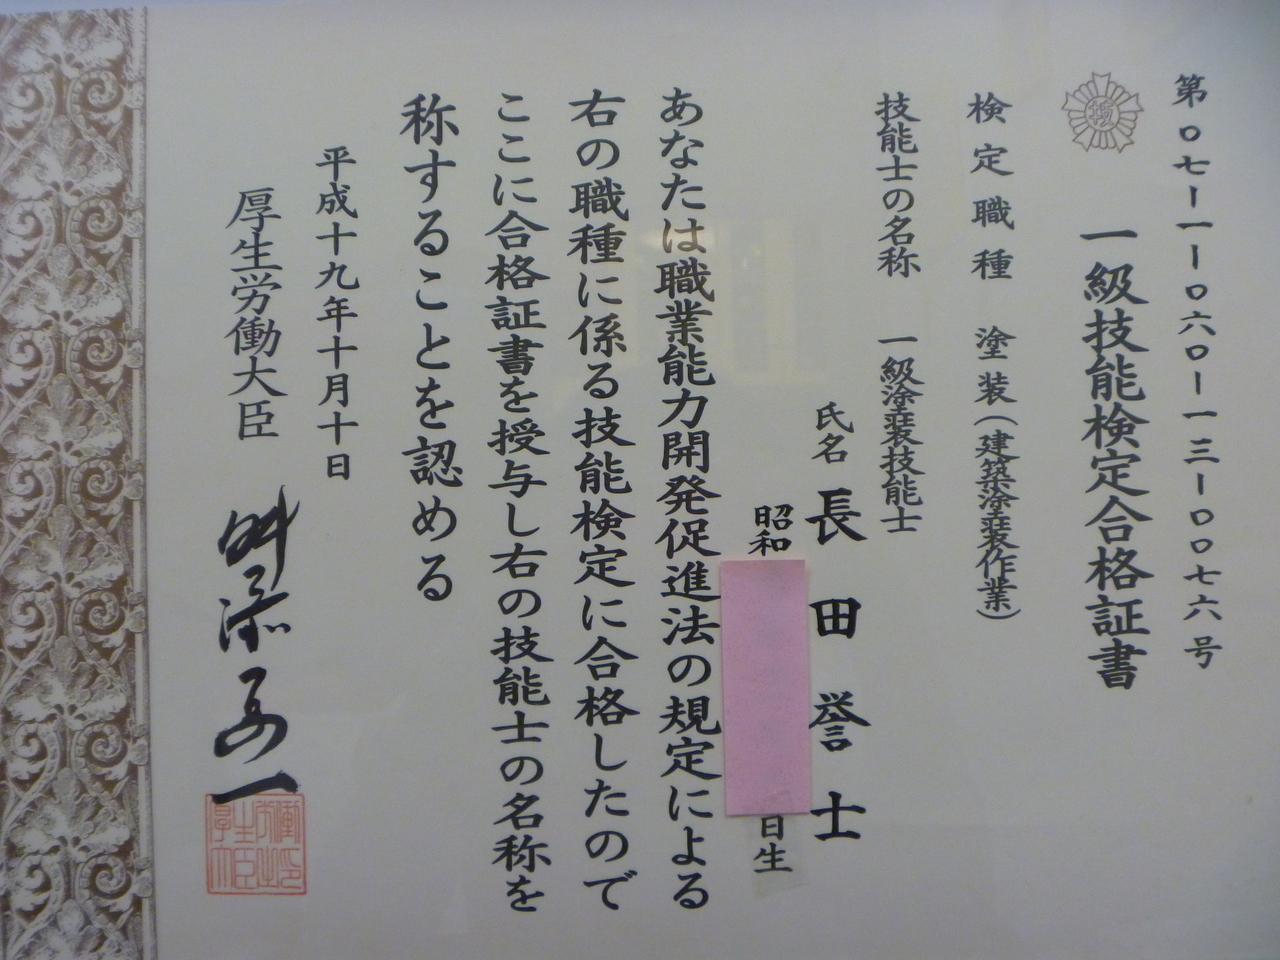 第〇七ー一ー〇六〇ー一三ー〇〇七六号
技
一級技能検定合格証書
検定職種 塗装(建築塗装作業)
技能士の名称 一級塗装技能士
氏名 長田誉士
昭和 日生
あなたは職業能力開発促進法の規定による
右の職種に係る技能検定に合格したので
ここに合格証書を授与し右の技能士の名称を
称することを認める
平成十九年十月十日
厚生労働大臣 舛添要一